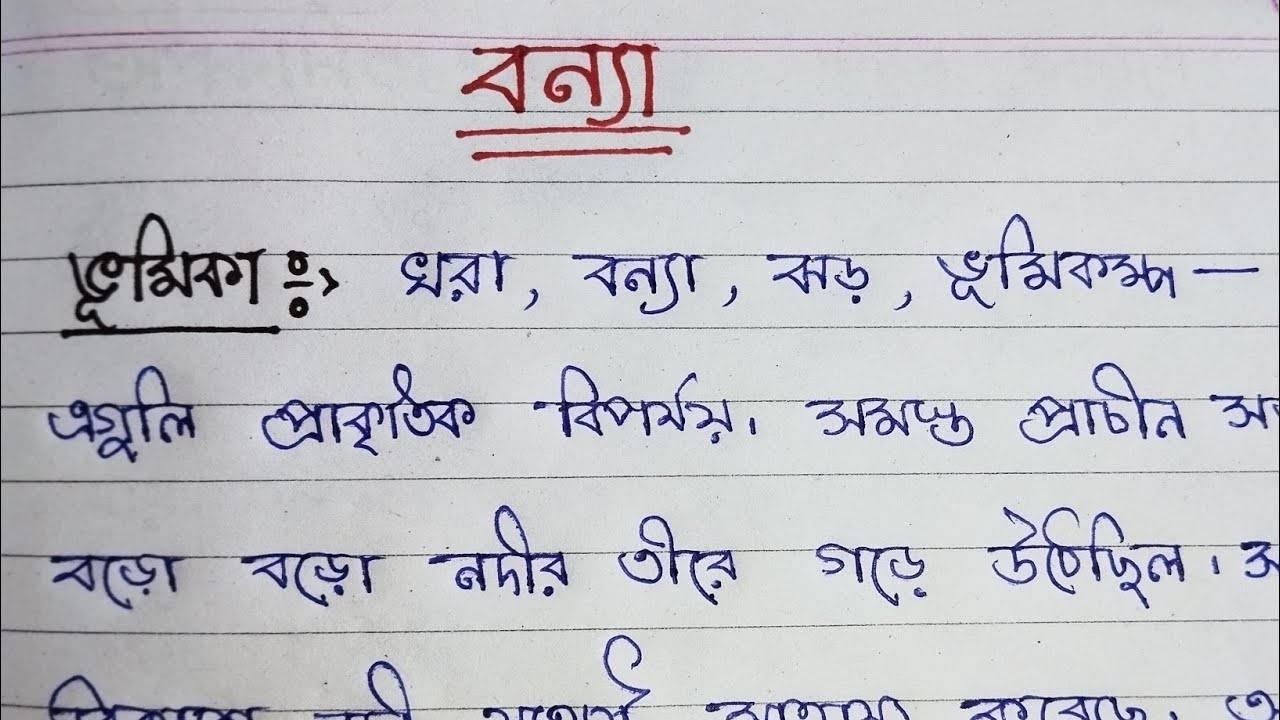 বন্যা
ভূমিকা :> খরা, বন্যা, ঝড়, ভূমিকম্প —
এগুলি প্রাকৃতিক বিপর্যয়। সমস্ত প্রাচীন
বড়ো বড়ো নদীর তীরে গড়ে উঠেছিল।